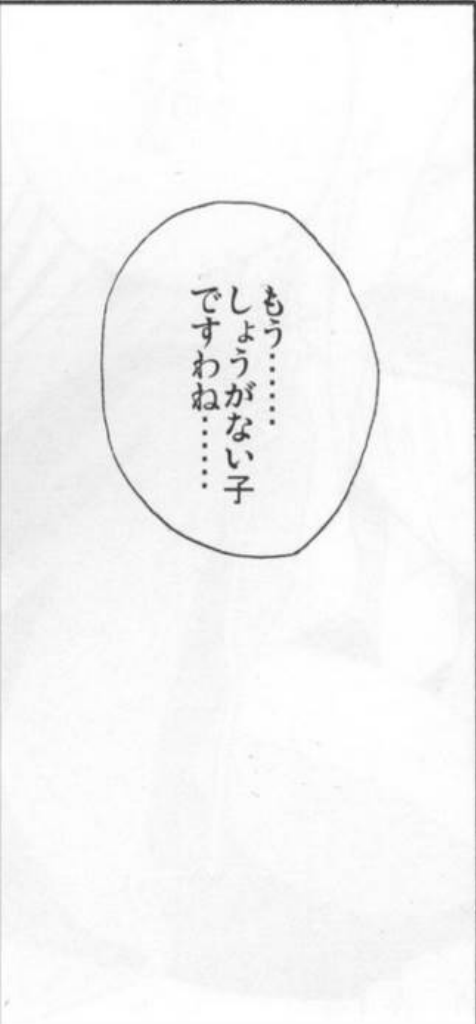 もう……
しょうがない子
ですわね……